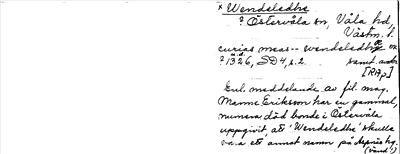 × Wendeledhe
? Östervåla sn, Våla hd,
Västm. l.
curias meas -- wendeledhe ex
u.d.
? 1326, SD 4, s. 2. samt. avskr
[RAp]
Enl. meddelande av fil. mag.
Manne Eriksson har en gammal,
numera död bonde i Östervåla
uppgivit, att 'Wendeledhe' skulle
vara ett annat namn på Aspnäs hg.
(vänd!)